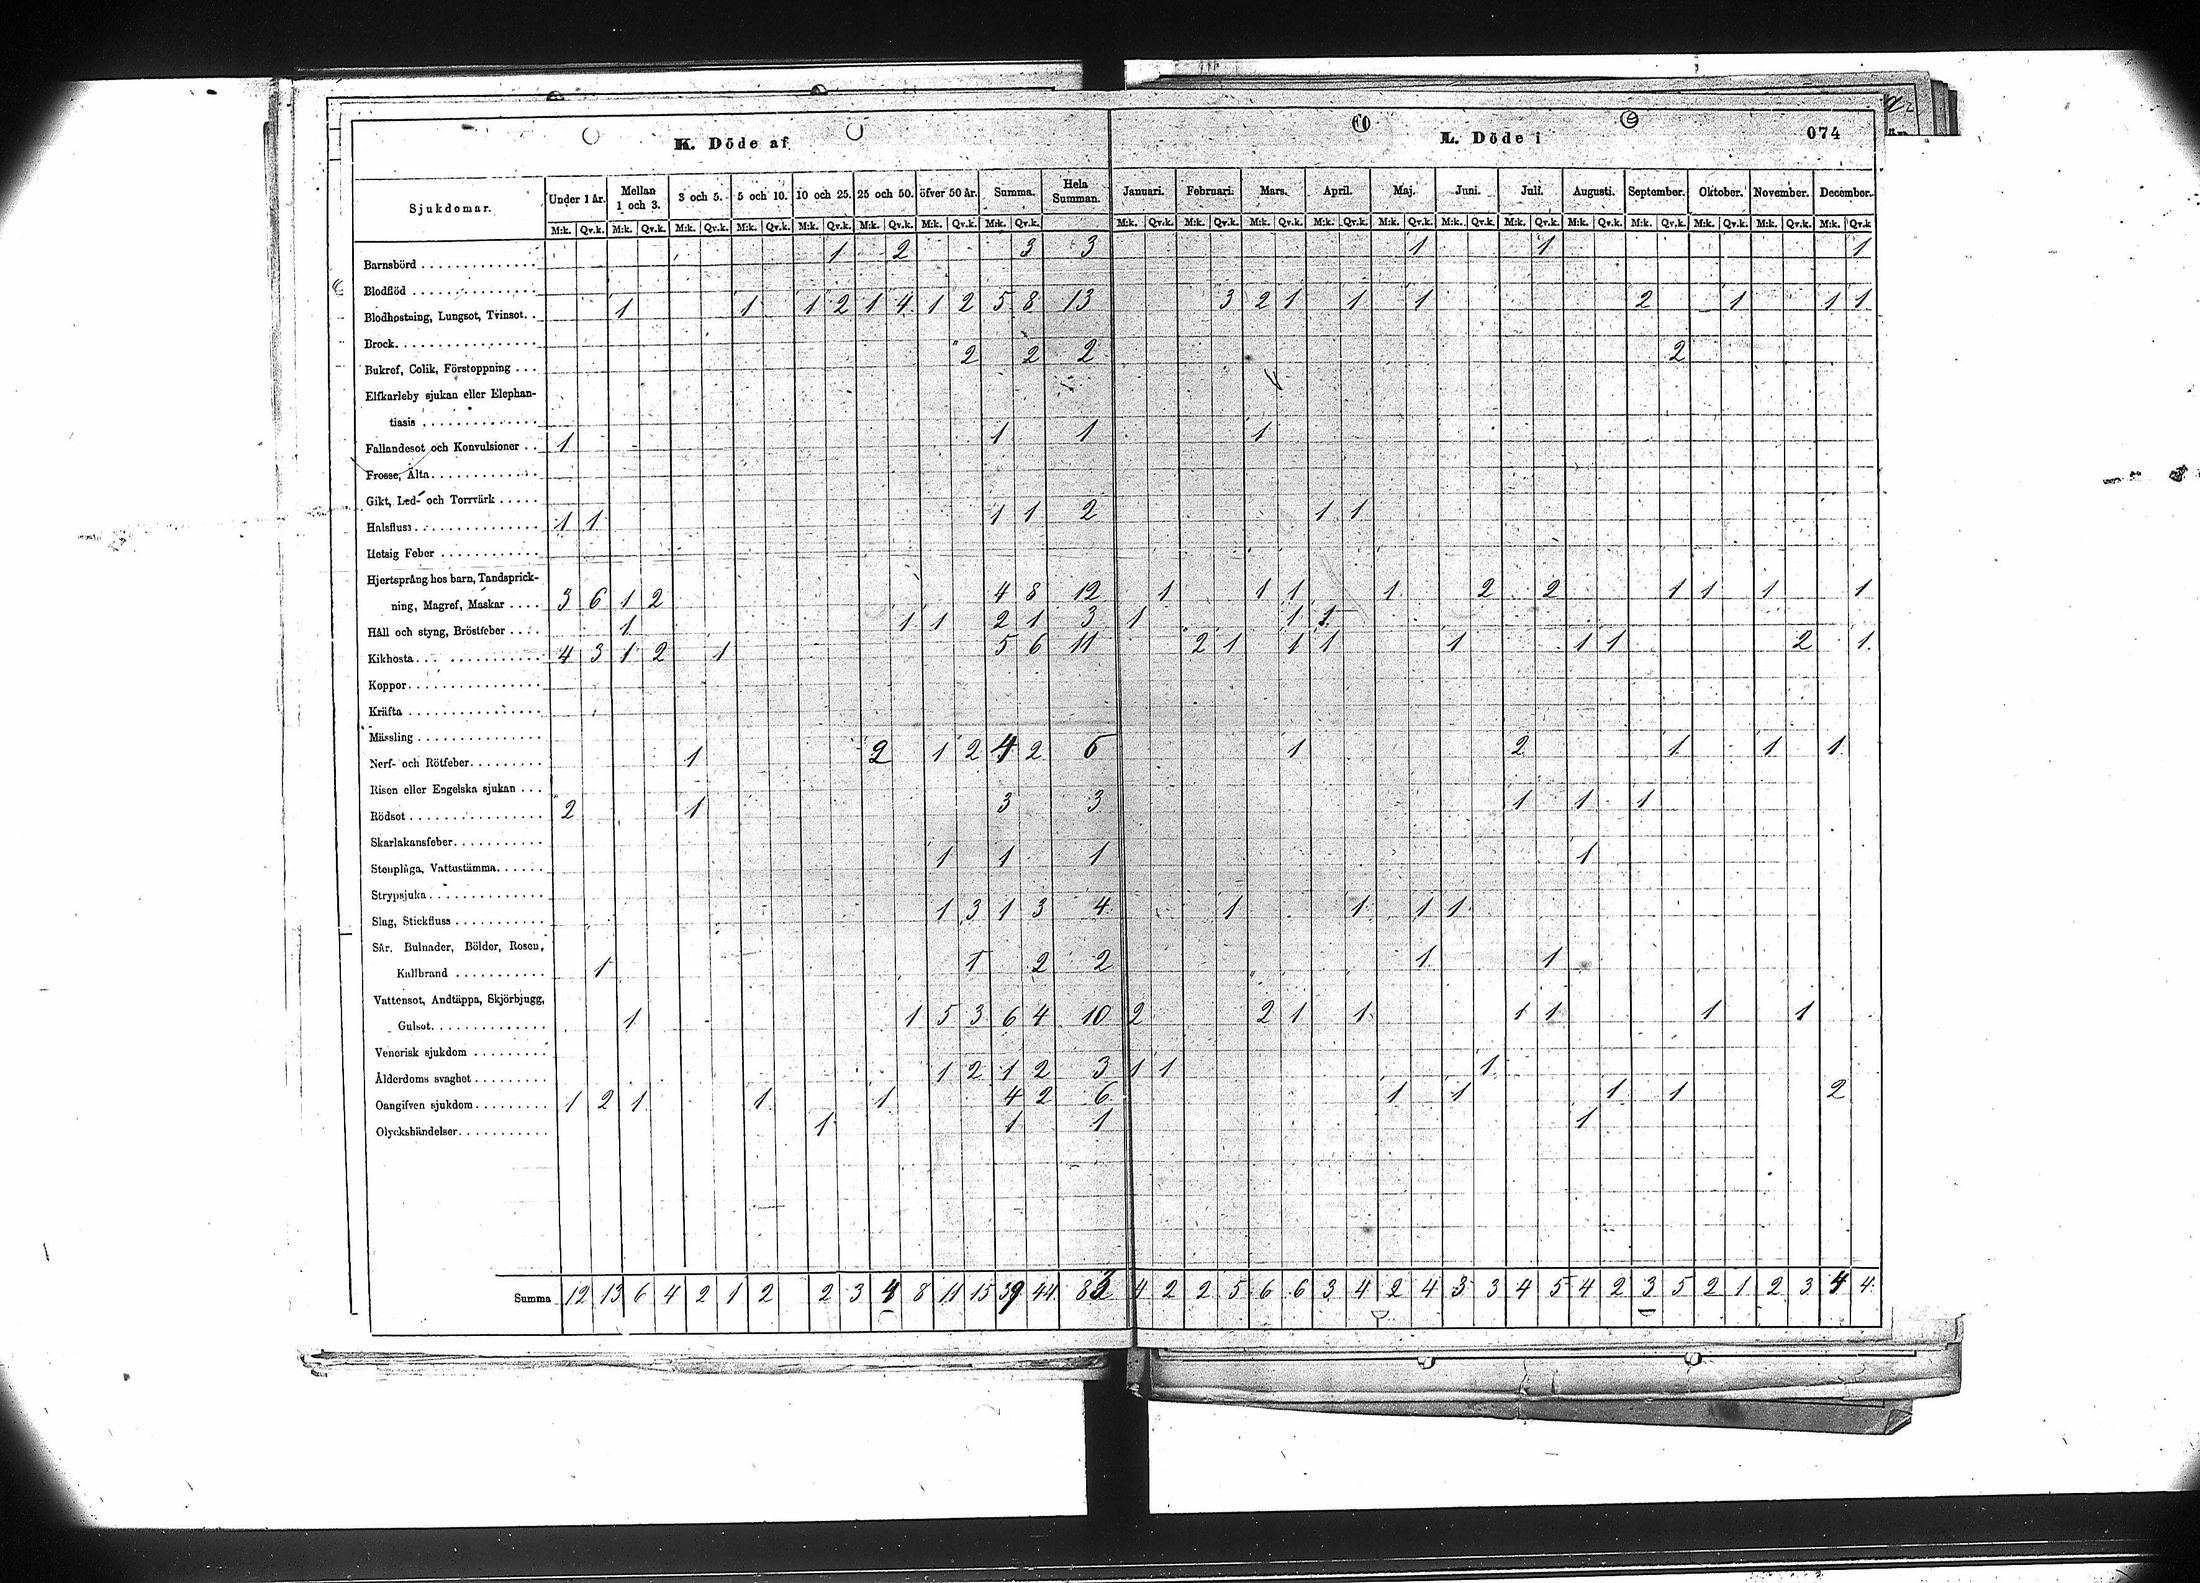 K. Döde af
L. Döde i
074
Sjukdomar. Under 1 år. Mellan 1 och 3. 3 och 5. 5 och 10. 10 och 25. 25 och 50. öfver 50 år. Summa. Hela Summan. Januari. Februari. Mars. April. Maj. Juni. Juli. Augusti. September. Oktober. November. December.
M:k. Qv.k. M:k. Qv.k. M:k. Qv.k. M:k. Qv.k. M:k. Qv.k. M:k. Qv.k. M:k. Qv.k. M:k. Qv.k. M:k. Qv.k. M:k. Qv.k. M:k. Qv.k. M:k. Qv.k. M:k. Qv.k. M:k. Qv.k. M:k. Qv.k. M:k. Qv.k. M:k. Qv.k. M:k. Qv.k. M:k. Qv.k. M:k. Qv.k
Barnsbörd 1 2 3 3 1 1 1
Blodflöd
Blodhostning, Lungsot, Tvinsot. 1 1 1 2 1 4 1 2 5 8 13 3 2 1 1 1 2 1 1 1
Brock
Bukref, Colik, Förstoppning 2 2 2 2
Elfkarleby sjukan eller Elephan-
tiasis
Fallandesot och Konvulsioner 1 1 1 1
Frosse, Älta
Gikt, Led- och Torrvärk
Halsfluss 1 1 1 1 2 1 1
Hetsig Feber
Hjertsprång hos barn, Tandsprick-
ning, Magref, Maskar 3 6 1 2 4 8 12 1 1 1 1 2 2 1 1 1 1
Håll och styng, Bröstfeber 1 1 1 2 1 3 1 1 1
Kikhosta 4 3 1 2 1 5 6 11 2 1 1 1 1 1 1 2 1
Koppor
Kräfta
Mässling
Nerf- och Rötfeber 1 2 1 2 4 2 6 1 2 1 1 1
Risen eller Engelska sjukan
Rödsot 2 1 3 3 1 1 1
Skarlakansfeber
Stenplåga, Vattustämma 1 1 1 1
Strypsjuka
Slag, Stickfluss 1 3 1 3 4 1 1 1 1
Sår, Bulnader, Bölder, Rosen,
Kallbrand 1 1 2 2 1 1
Vattensot, Andtäppa, Skjörbjugg,
Gulsot 1 1 5 3 6 4 10 2 2 1 1 1 1 1 1
Venerisk sjukdom
Ålderdoms svaghet 1 2 1 2 3 1 1 1
Oangifven sjukdom 1 2 1 1 1 4 2 6 1 1 1 1 2
Olyckshändelser 1 1 1 1
Summa 12 13 6 4 2 1 2 2 3 4 8 11 15 39 44 83 4 2 2 5 6 6 3 4 2 4 3 3 4 5 4 2 3 5 2 1 2 3 4 4